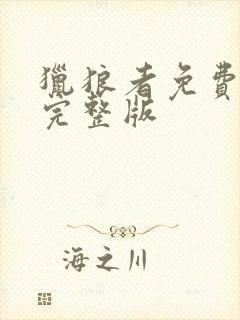 獵狼者免費
完整版
海之川